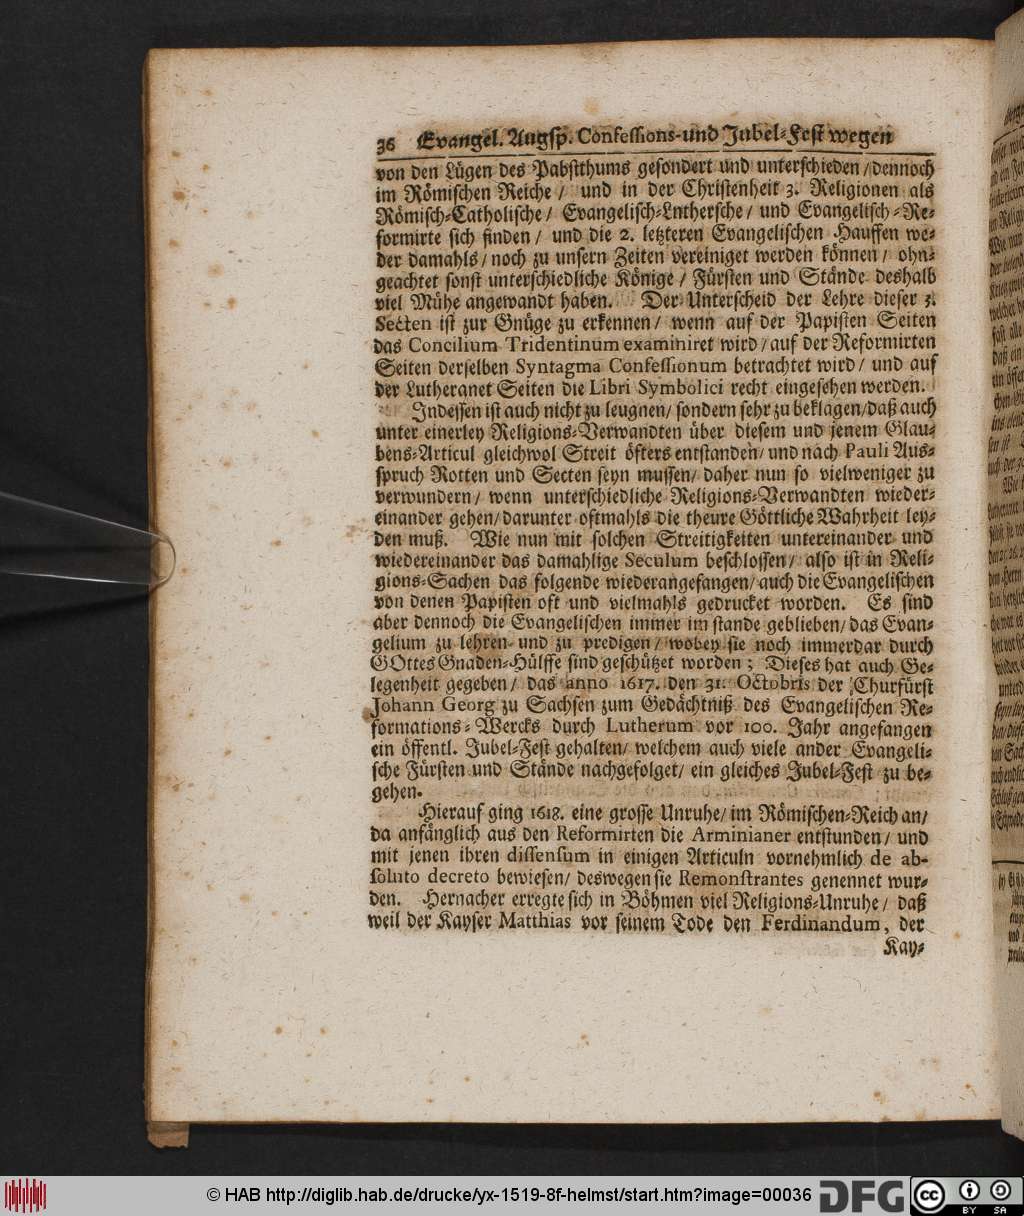 36 Evangel. Augsp. Confessions-und Jubel-Fest wegen
von den Lügen des Pabstthums gesondert und unterschieden/dennoch
im Römischen Reiche / und in der Christenheit 3. Religionen als
Römisch-Catholische/ Evangelisch-Lnthersche/ und Evangelisch-Re-
formirte sich finden/ und die 2. letzteren Evangelischen Hauffen we-
der damahls/noch zu unsern Zeiten vereiniget werden können/ ohn-
geachtet sonst unterschiedliche Könige/ Fürsten und Stände deshalb
viel Mühe angewandt haben. Der Unterscheid der Lehre dieser 3.
Secten ist zur Gnüge zu erkennen/ wenn auf der Papisten Seiten
das Concilium Tridentinum examiniret wird/auf der Reformirten
Seiten derselben Syntagma Confessionum betrachtet wird/ und auf
der Lutheranet Seiten die Libri Symbolici recht eingesehen werden.
Indessen ist auch nicht zu leugnen/ sondern sehr zu beklagen/daß auch
unter einerley Religions-Verwandten über diesem und jenem Glau-
bens-Articul gleichwol Streit öfters entstanden/und nach Pauli Aus-
spruch Rotten und Secten seyn mussen/ daher nun so vielweniger zu
verwundern/ wenn unterschiedliche Religions-Verwandten wieder-
einander gehen/darunter oftmahls die theure Göttliche Wahrheit ley-
den muß. Wie nun mit solchen Streitigkeiten untereinander und
wiedereinander das damahlige Seculum beschlossen/ also ist in Reli-
gions-Sachen das folgende wiederangefangen/auch die Evangelischen
von denen Papisten oft und vielmahls gedrucket worden. Es sind
aber dennoch die Evangelischen immer im stande geblieben/das Evan-
gelium zu lehren und zu predigen/wobey sie noch immerdar durch
GOttes Gnaden-Hülffe sind geschützet worden; Dieses hat auch Ge-
legenheit gegeben/ das anno 1617. den 31. Octobris der Churfürst
Johann Georg zu Sachsen zum Gedächtniß des Evangelischen Re-
formations-Wercks durch Lutherum vor 100. Jahr angefangen
ein öffentl. Jubel-Fest gehalten/ welchem auch viele ander Evangeli-
sche Fürsten und Stände nachgefolget/ ein gleiches Jubel-Fest zu be-
gehen.
Hierauf ging 1618. eine grosse Unruhe/im Römischen-Reich an/
da anfänglich aus den Reformirten die Arminianer entstunden/ und
mit jenen ihren dissensum in einigen Articuln vornehmlich de ab-
soluto decreto bewiesen/ deswegen sie Remonstrantes genennet wur-
den. Hernacher erregte sich in Böhmen viel Religions-Unruhe/ daß
weil der Kayser Matthias vor seinem Tode den Ferdinandum, der
Kay-
© HAB http://diglib.hab.de/drucke/yx-1519-8f-helmst/start.htm?image=00036
DFG
cc BY SA